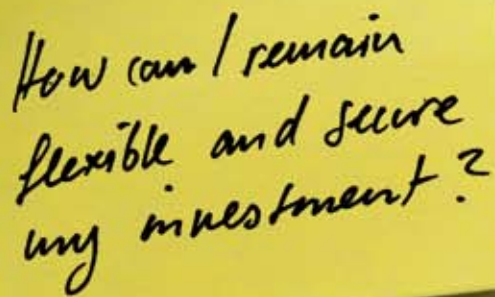 How can I remain
flexible and secure
my investment?